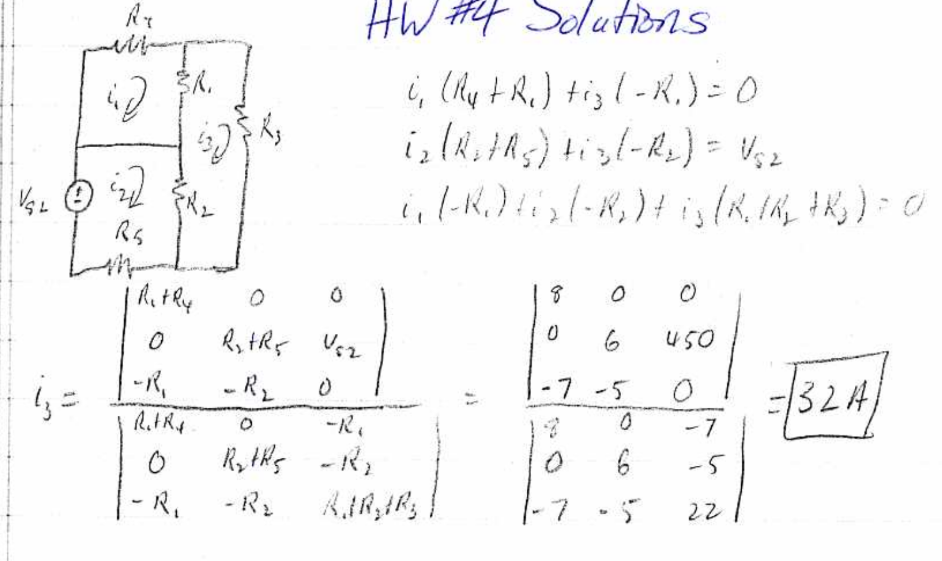 HW #4 Solutions
R4
i1
R1
i3
R3
Vs2
i2
R2
R5
i1 (R4 + R1) + i3 (-R1) = 0
i2 (R2 + R5) + i3 (-R2) = Vs2
i1 (-R1) + i2 (-R2) + i3 (R1 + R2 + R3) = 0
i3 =
R1+R4 0 0
0 R2+R5 Vs2
-R1 -R2 0
R1+R4 0 -R1
0 R2+R5 -R2
-R1 -R2 R1+R2+R3
=
8 0 0
0 6 450
-7 -5 0
8 0 -7
0 6 -5
-7 -5 22
= 32 A